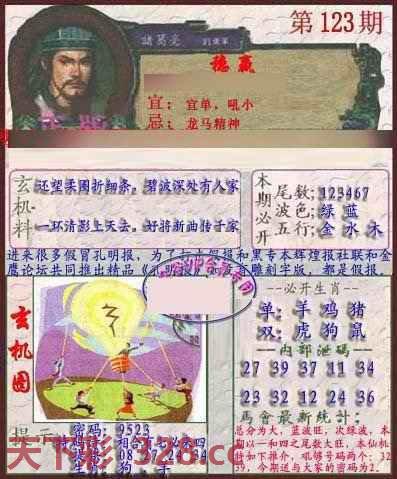 第123期
諸葛亮
稳赢
宜：宜单，吼小
忌：龙马精神
玄机料
还望柔圈折细条。碧波深处有人家
一环清影上天去。好将新曲传子家
本期必开
尾数：123467
波色：绿 蓝
五行：金 水 木
进来很多假冒孔明报，为了
和黑专本辉煌报社联和金
鹰论坛共同推出精品《孔明报》
雕刻字版，都是假报。
玄机图
--必开生肖--
单：羊 鸡 猪
双：虎 狗 鼠
--内部泄码--
27 39 37 11 34
23 32 12 24 36
馬會最新統計：
总分为大，蓝波旺，次绿波，本
期以一和四之尾数大旺，本仙机
特如下推介，吼够号码两个：32
39，今期送与大家的密码为2.
提示
密码：9523
天下彩 328.cc